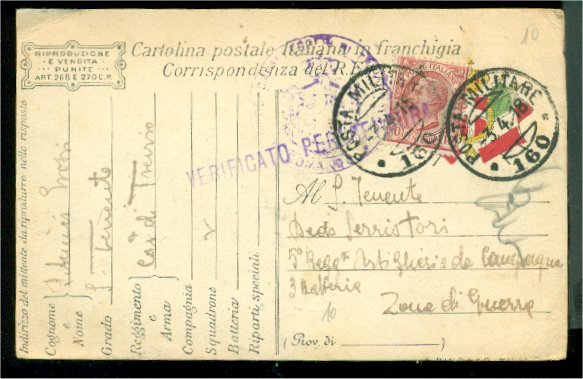 10
RIPRODUZIONE
E VENDITA
PUNITE
ART. 268 E 270 C.P.
Cartolina postale italiana in franchigia
Corrispondenza del R.E
VERIFICATO PER CENSURA
POSTA MILITARE
160
POSTA MILITARE
160
Indirizzo del mittente da riprodurre nelle risposte
Cognome
e
Nome
Grado S. Tenente
Reggimento
e
Arma
Compagnia
Squadrone
Batteria
Riparti speciali
Al S. Tenente
Serristori
5° Regg. Artiglieria da Campagna
3 Batteria
Zona di Guerra
10
(Prov. di